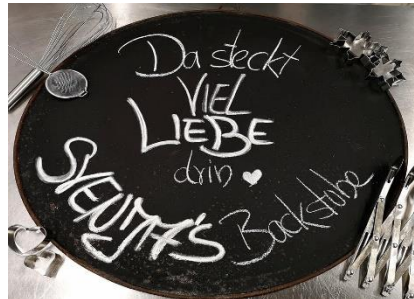 Da steckt
VIEL
LIEBE
drin ♥
SVENJA'S Backstube